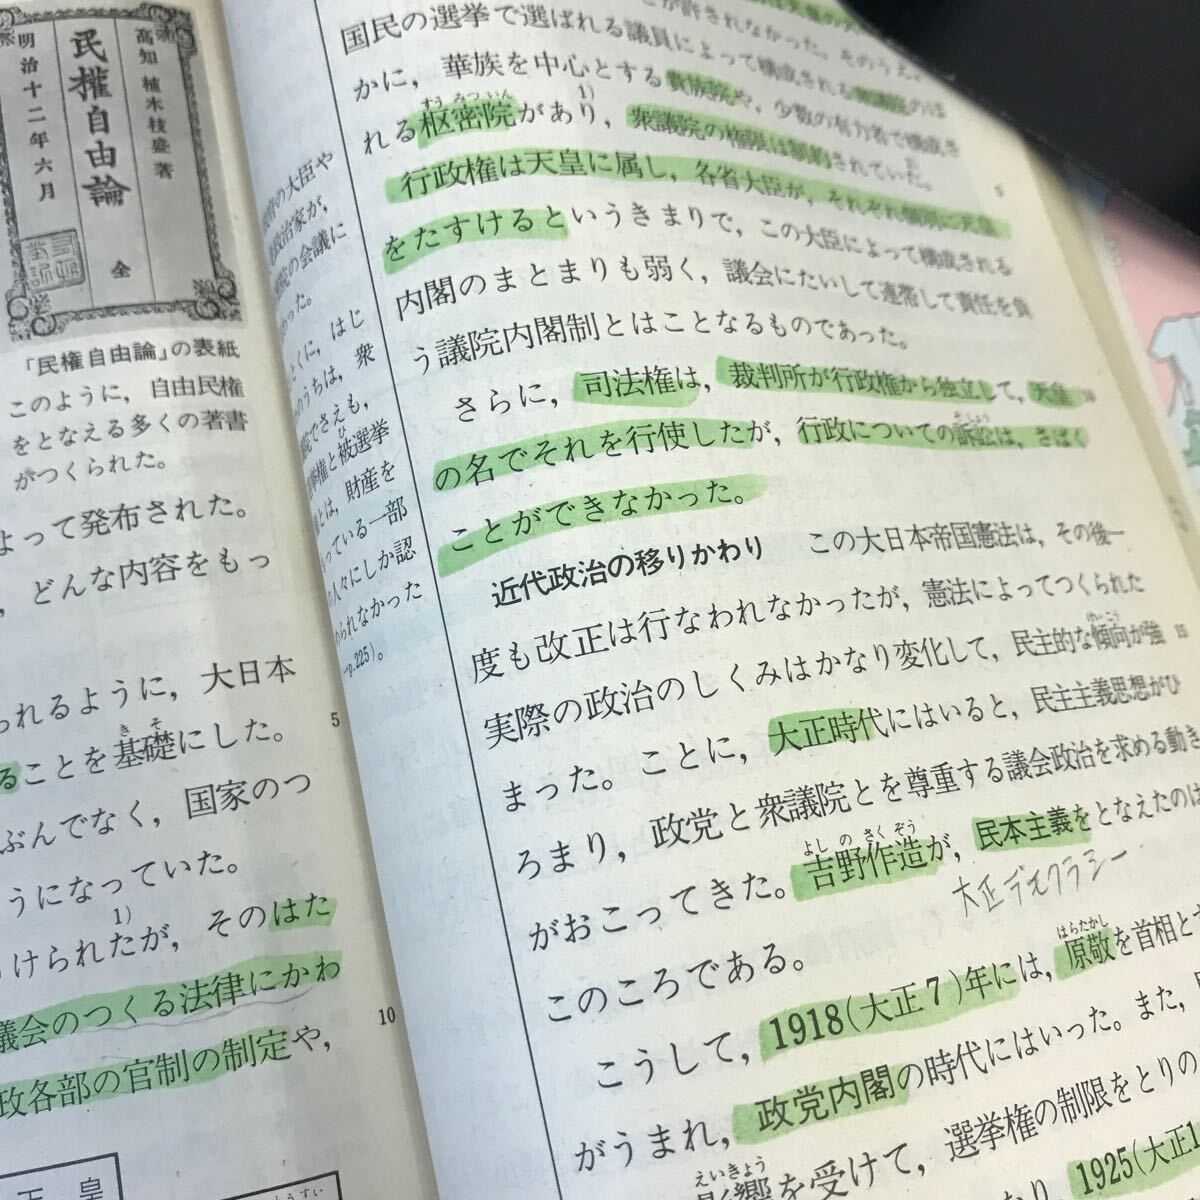 高知 植木枝盛 著
民權自由論 全
明治十二年六月
「民権自由論」の表紙
このように，自由民権
をとなえる多くの著書
がつくられた。
よって発布された。
，どんな内容をもっ
られるように，大日本
きそ
ることを基礎にした。
ぶんでなく，国家のつ
うになっていた。
1)
けられたが，そのはた
議会のつくる法律にかわ
政各部の官制の制定や，
天皇
5
10
の大臣や
政治家が，
の会議に
った。
とくに，はじ
のうちは，衆
院でさえも，
ひ
選挙権と被選挙
とは，財産を
っている一部
の人々にしか認
められなかった
p.225)。
が許されなかった。そのうえ，
国民の選挙で選ばれる議員によって構成される衆議院のほ
かに，華族を中心とする貴族院や，少数の有力者で構成さ
すうみついん
1)
れる枢密院があり，衆議院の権限は制約されていた。
5
行政権は天皇に属し，各省大臣が，それぞれ個別に天皇
をたすけるというきまりで，この大臣によって構成される
内閣のまとまりも弱く，議会にたいして連帯して責任を負
う議院内閣制とはことなるものであった。
さらに，司法権は，裁判所が行政権から独立して，天皇
10
そしょう
の名でそれを行使したが，行政についての訴訟は，さばく
ことができなかった。
近代政治の移りかわり　この大日本帝国憲法は，その後一
度も改正は行なわれなかったが，憲法によってつくられた
けいこう
実際の政治のしくみはかなり変化して，民主的な傾向が強
15
まった。ことに，大正時代にはいると，民主主義思想がひ
ろまり，政党と衆議院とを尊重する議会政治を求める動き
よしのさくぞう
がおこってきた。吉野作造が，民本主義をとなえたのは
大正デモクラシー
このころである。
はらたかし
こうして，1918(大正7)年には，原敬を首相と
がうまれ，政党内閣の時代にはいった。また，
えいきょう
影響を受けて，選挙権の制限をとりの
1925(大正1